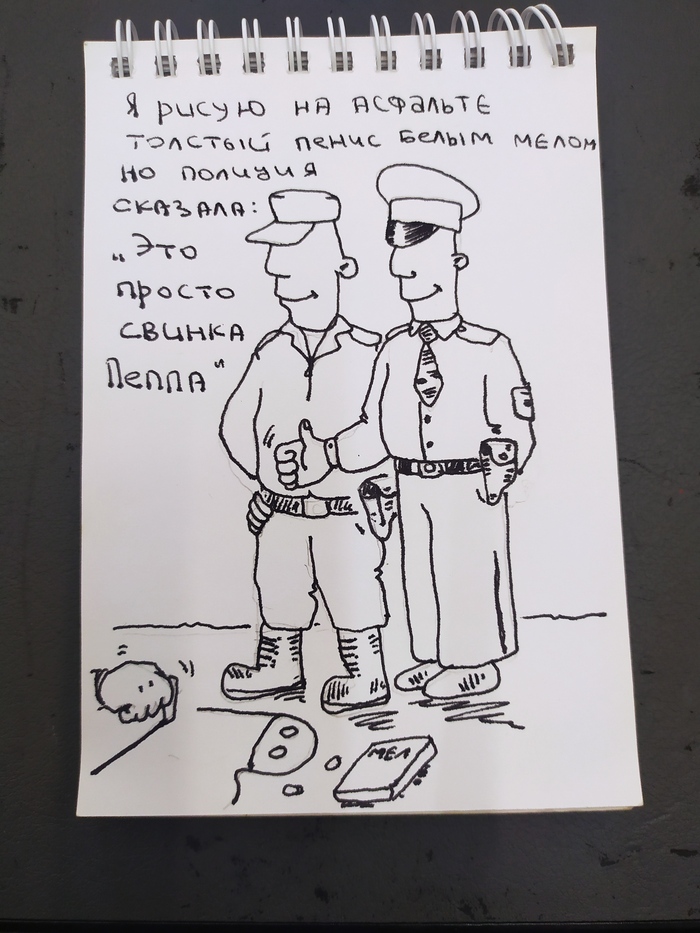 Я рисую на асфальте
толстый пенис белым мелом
но полиция
сказала:
„Это
просто
свинка
Пеппа"
МЕЛ